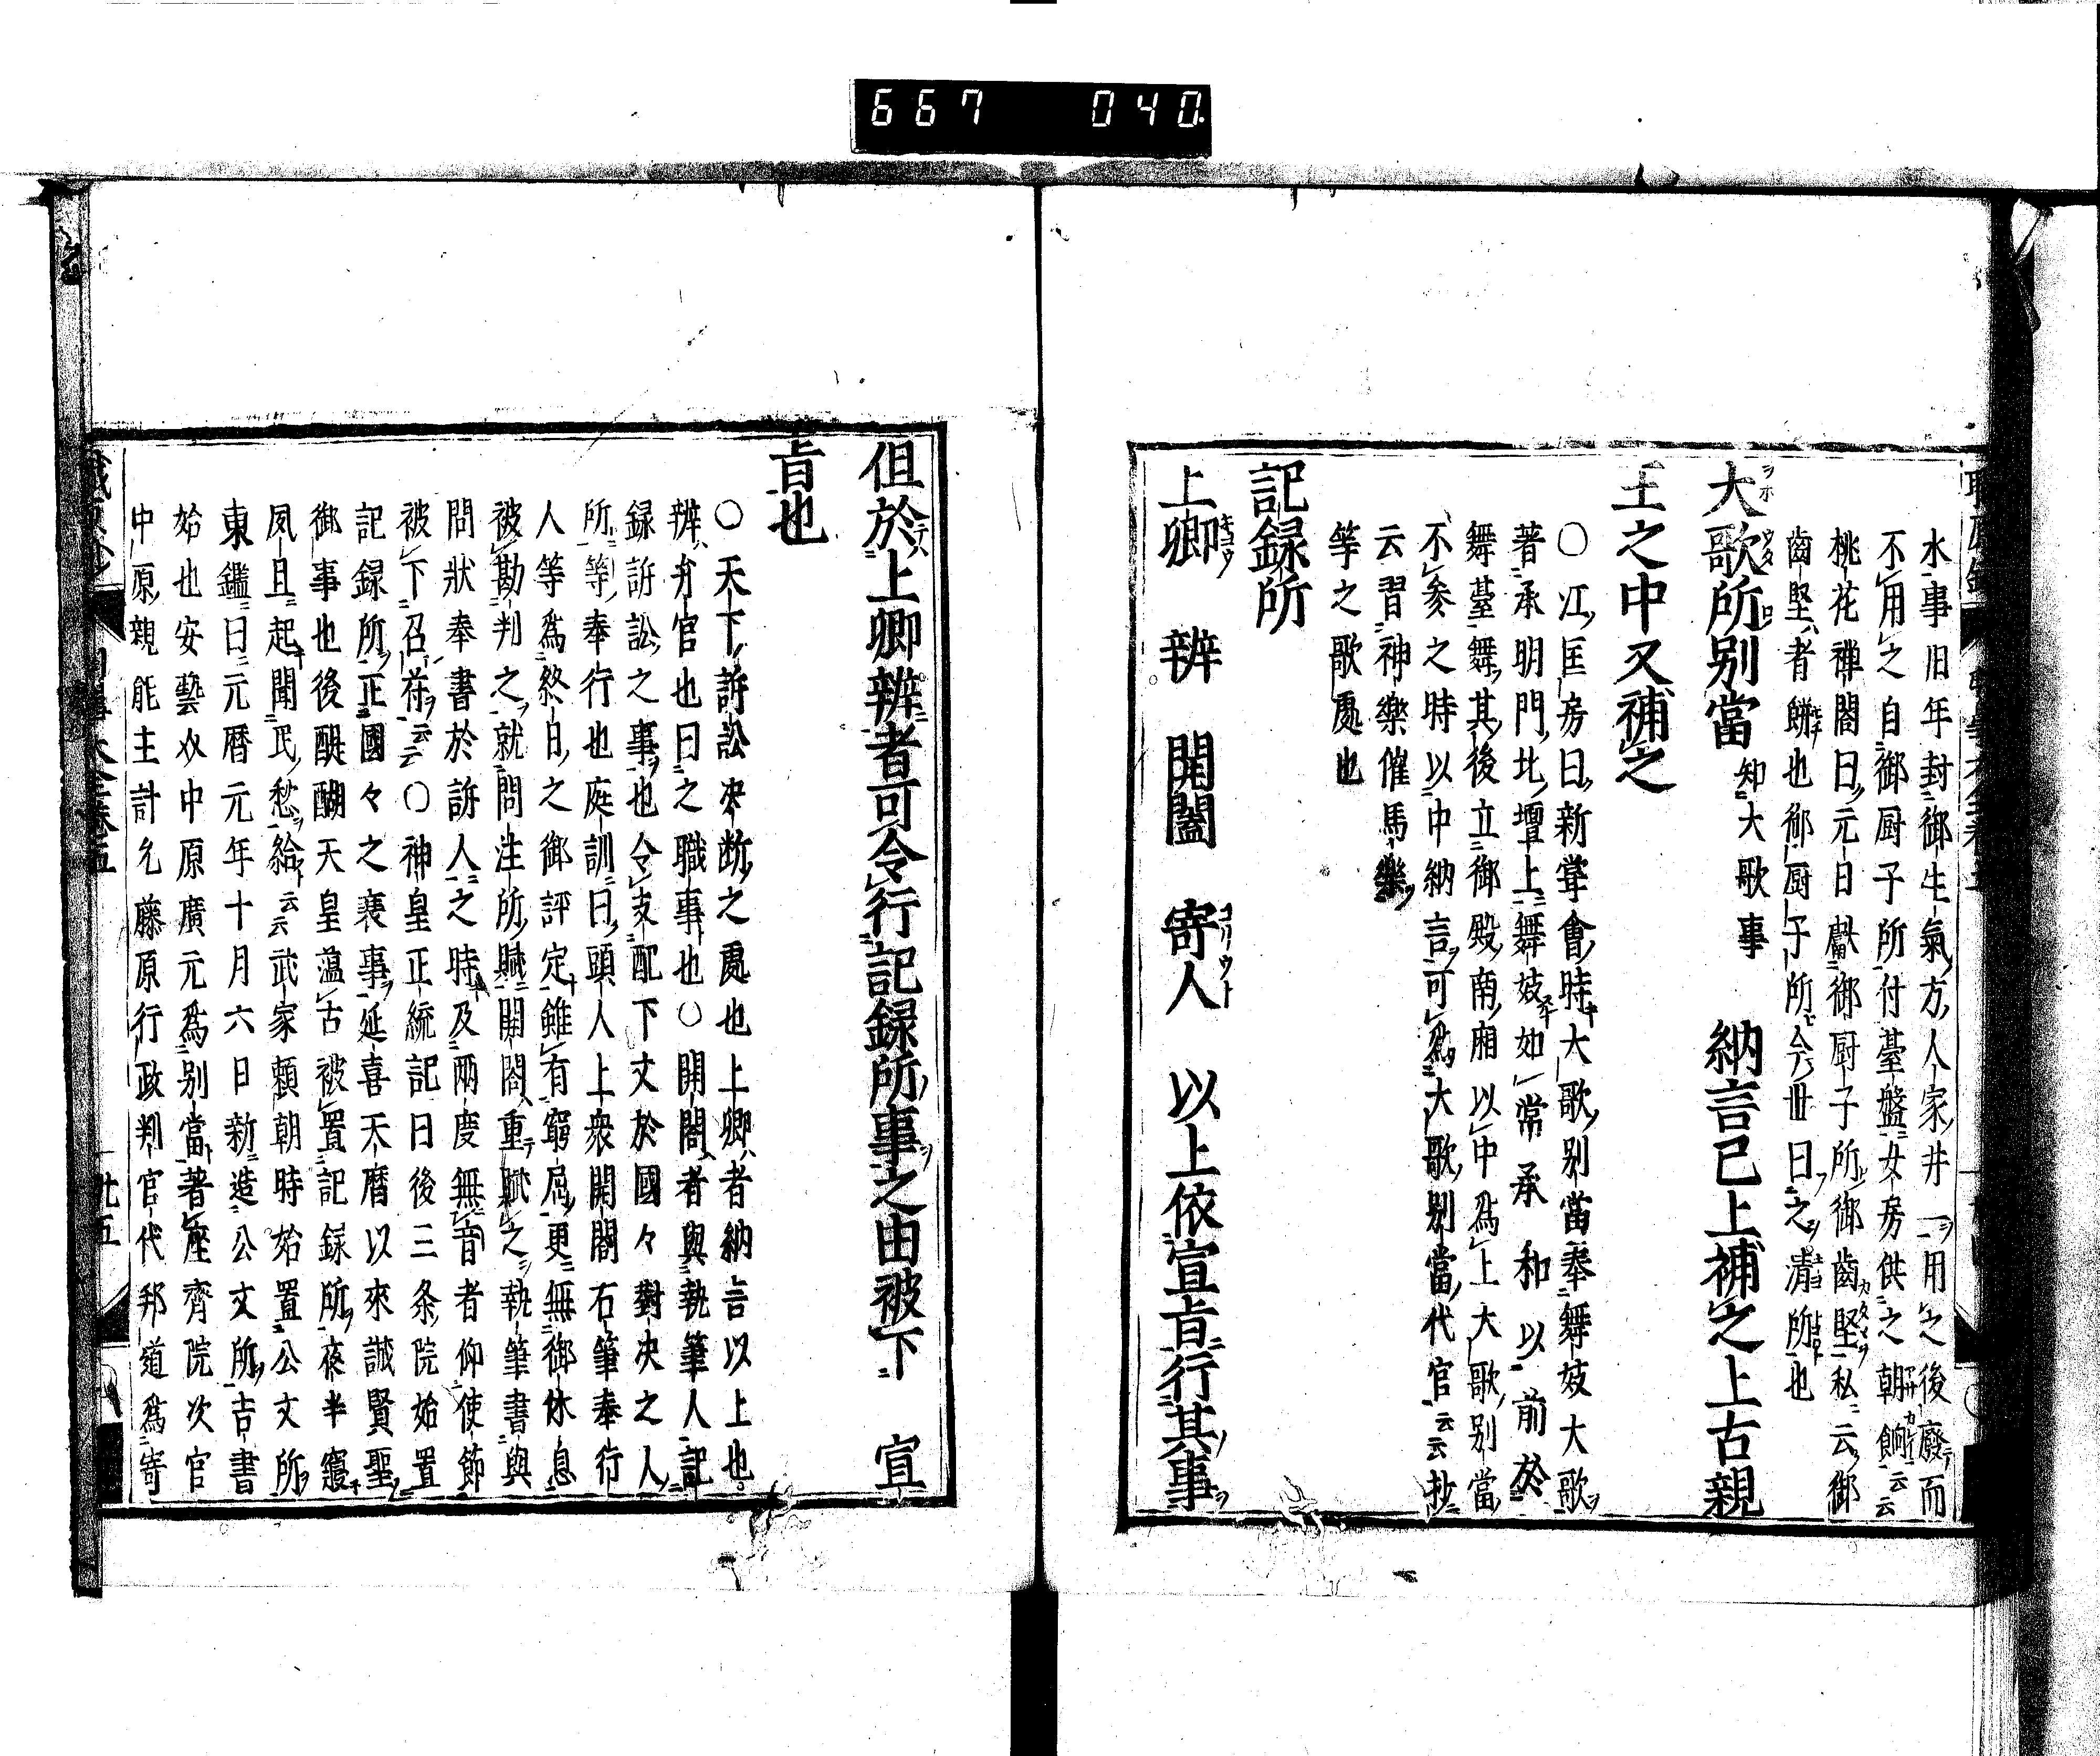 667 040
水事旧年封御生氣方人家井一用之後廢而
不用之自御厨子所付臺盤女房供之朝餉云云
桃花禅閤曰元日獻御厨子所御齒堅私云御
齒堅者餅也御厨子所今世曰之清所也
大歌所別當 知大歌事 納言已上補之上古親
王之中又補之
○江匡房曰新甞會時大歌別當奉舞妓大歌
著承明門北壇上舞妓如常承和以前於
舞臺舞其後立御殿南廂以中爲上大歌別當
不参之時以中納言可爲大歌別當代官云云抄
云習神樂催馬樂
等之歌處也
記録所
上卿 辨 開闔 寄人 以上依宣旨行其事
但於上卿辨者可令行記録所事之由被下 宣
旨也
○天下訴訟决断之處也上卿者納言以上也
辨弁官也曰之職事也○開闔者與執筆人記
録訴訟之事也令支配下文於國々對决之人
所等奉行也庭訓曰頭人上衆開闔右筆奉行
人等爲終日之御評定雖有窮屈更無御休息
被勘判之就問注所賦開闔重賦之執筆書與
問狀奉書於訴人之時及兩度無音者仰使節
被下召符云云○神皇正統記曰後三条院始置
記録所正國々之衰事延喜天暦以來誠賢聖
御事也後醍醐天皇温古被置記録所夜半寢
夙且起聞民愁給云云武家頼朝時始置公文所
東鑑曰元暦元年十月六日新造公文所吉書
始也安藝双中原廣元爲別當著座齊院次官
中原親能主計允藤原行政判官代邦道爲寄
廿五